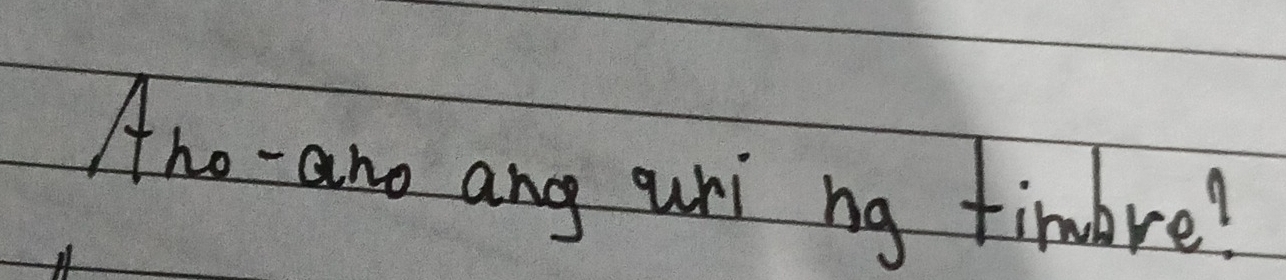 Ano-ano ang uri ng timbre?